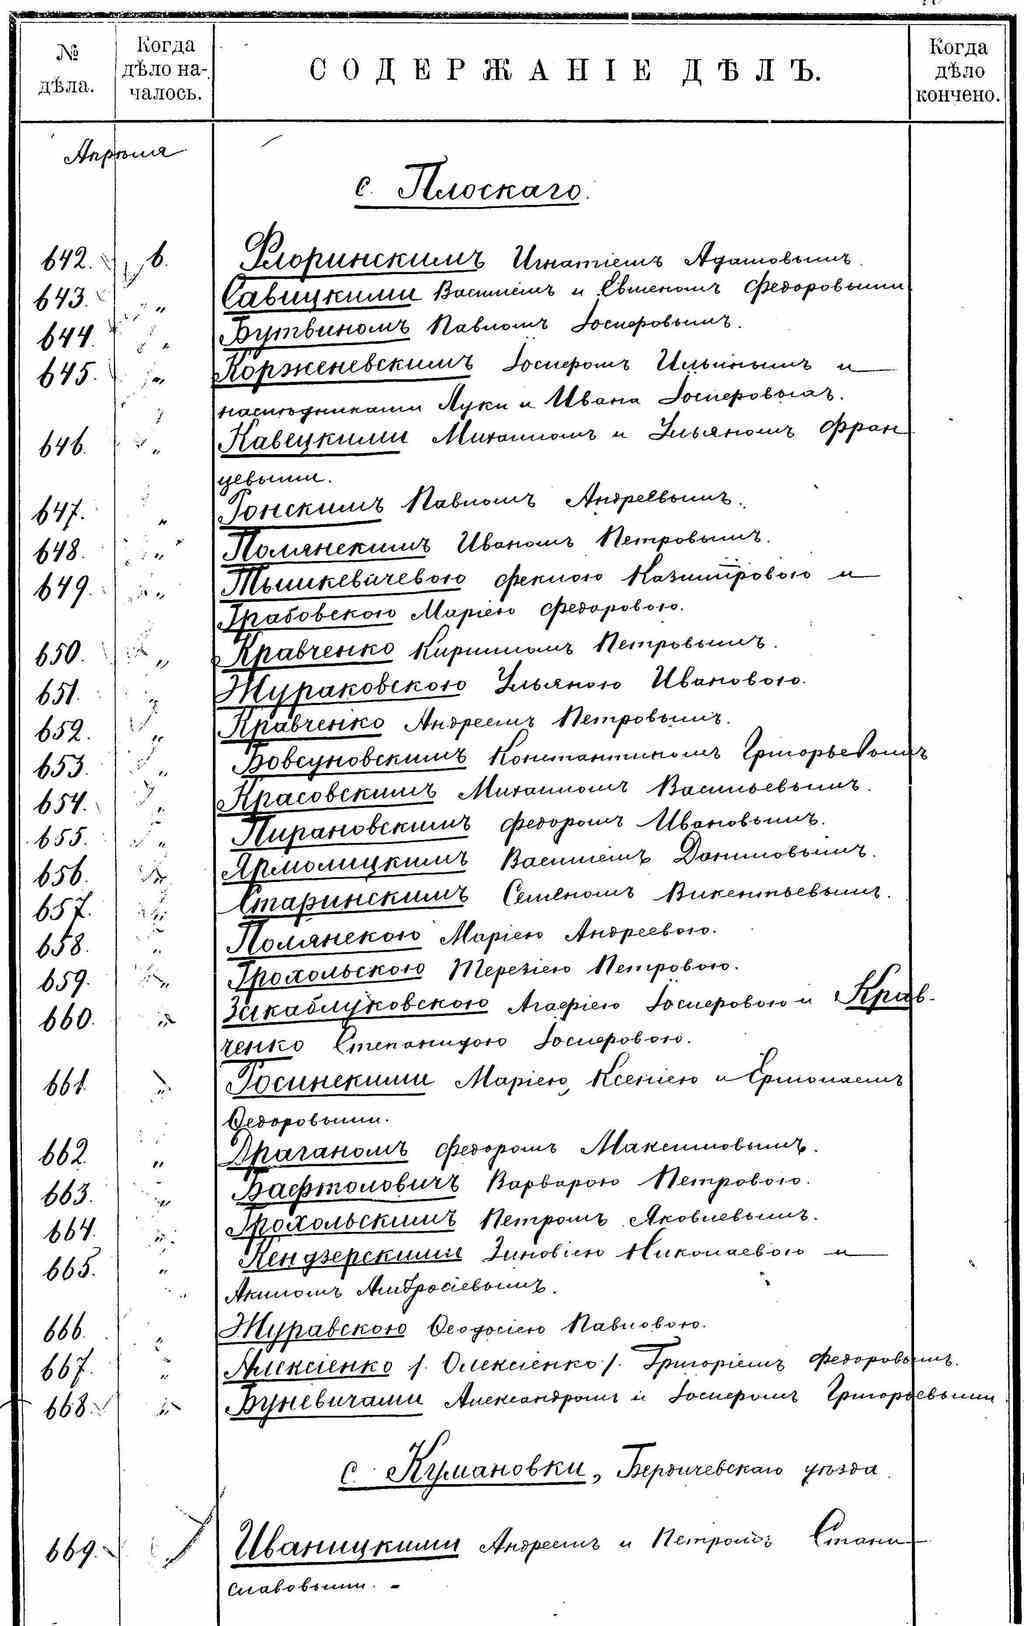 № дѣла. Когда дѣло началось. СОДЕРЖАНІЕ ДѢЛЪ. Когда дѣло кончено.
Апрѣля
с. Плоскаго.
642. 6. Флоринскимъ Игнатіемъ Адамовымъ.
643. " Савицкими Василіемъ и Евгеномъ Федоровыми
644. " Бутвиномъ Павломъ Іосифовымъ.
645. " Корженевскимъ Іосифомъ Ильинымъ и
наслѣдниками Луки и Ивана Іосифовыхъ.
646. " Кавецкими Михаиломъ и Ульяномъ Фран
цевыми.
647. " Гонскимъ Павломъ Андреевымъ.
648. " Полянскимъ Иваномъ Петровымъ.
649. " Тышкевичевою Феклою Казимировою и
Грабовскою Маріею Федоровою.
650. " Кравченко Кириломъ Петровымъ.
651. " Жураковскою Ульяною Ивановою.
652. " Кравченко Андреемъ Петровымъ.
653. " Бовсуновскимъ Константиномъ Григорьевымъ
654. " Красовскимъ Михаиломъ Васильевымъ.
655. " Пирановскимъ Федоромъ Ивановымъ.
656. " Ярмолицкимъ Василіемъ Даниловымъ.
657. " Старинскимъ Семеномъ Викентьевымъ.
658. " Полянскою Маріею Андреевою.
659. " Грохольскою Терезіею Петровою.
660. " Закаблуковскою Агафіею Іосифовою и Крав-
ченко Степанидою Іосифовою.
661. " Росинскими Маріею, Ксеніею и Ермолаемъ
Федоровыми.
662. " Драганомъ Федоромъ Максимовымъ.
663. " Бафтоловичъ Варварою Петровою.
664. " Грохольскимъ Петромъ Яковлевымъ.
665. " Кендзерскими Зиновіею Николаевою и
Акимомъ Амбросіевымъ.
666. " Журавскою Феодосіею Павловою.
667. " Алексіенко /. Олексіенко /. Григоріемъ Федоровымъ.
668. " Буневичами Александромъ и Іосифомъ Григорьевыми
с. Кумановки, Бердичевскаго уѣзда.
669. Иваницкими Андреемъ и Петромъ Стани
славовыми. –